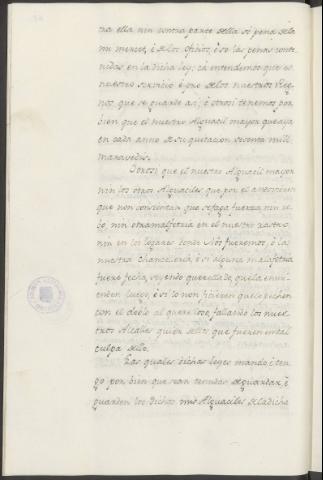 tra ella nin contra parte della só pena dela
mi merced, é delos oficios, é so las penas conte
nidas en la dicha ley; cá entendemos que es
nuestro servicio é pro delos nuestros Reg
nos, que se guarde asi; é otrosi tenemos por
bien que el nuestro Alguacil mayor que aya
en cada anno de su quitacion sesenta mill
maravedis.
Otrosi que el nuestro Alguacil mayor
nin los otros Alguaciles que por el andovieren
que non consientan que se faga fuerza nin ro
bo, nin otra malfetria en el nuestro rastro,
nin en los logares donde Nós fueremos, ó la
nuestra Chancelleria, é si alguna malafetria
fuere fecha, seyendo querellado, que la enmi
enden luego, é si lo non ficieren que lo pechen
con el doblo al querelloso, fallando los nues
tros Alcaldes quien ellos que fueren en tal
culpa dello.
Las quales dichas leyes mando é ten
go por bien que sean tenudas de guardar, é
guarden los dichos mis Alguaciles de la dicha